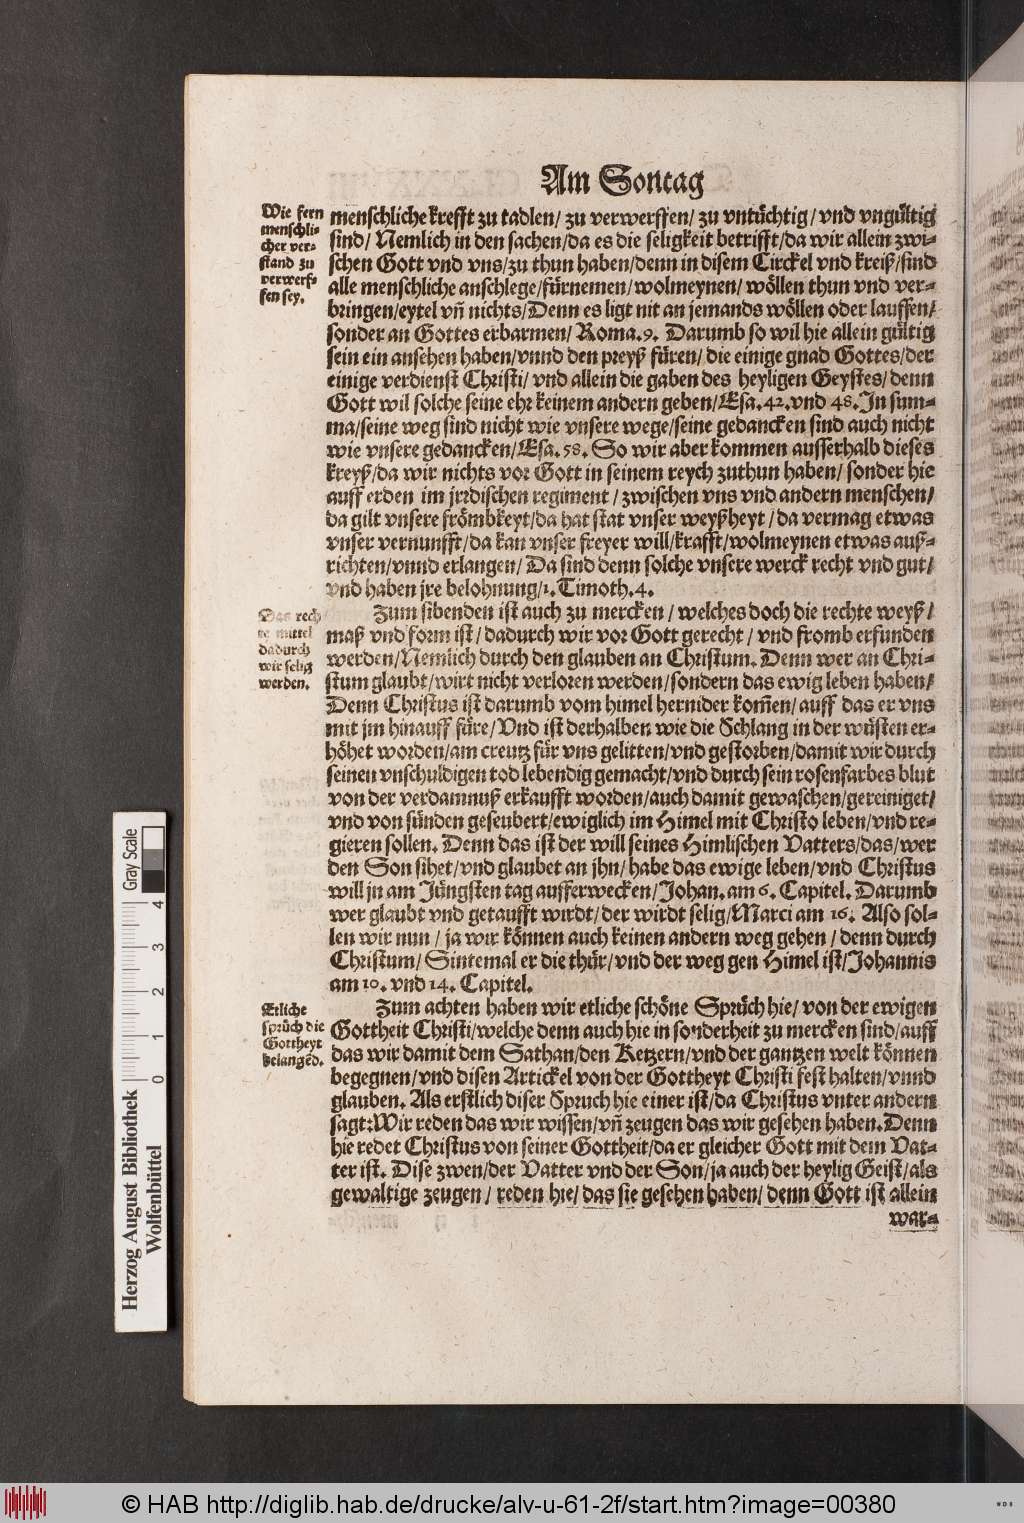 Am Sontag
Wie fern
menschli-
cher ver-
stand zu
verwerf-
fen sey.
menschliche krefft zu tadlen/ zu verwerffen/ zu vntüchtig/ vnd vngültig
sind/ Nemlich in den sachen/da es die seligkeit betrifft/da wir allein zwi-
schen Gott vnd vns/zu thun haben/denn in disem Circkel vnd kreiß/sind
alle menschliche anschlege/fürnemen/wolmeynen/ wöllen thun vnd ver-
bringen/eytel vn̄ nichts/Denn es ligt nit an jemands wöllen oder lauffen/
sonder an Gottes erbarmen/ Roma.9. Darumb so wil hie allein gültig
sein ein ansehen haben/vnnd den preyß füren/ die einige gnad Gottes/der
einige verdienst Christi/ vnd allein die gaben des heyligen Geystes/denn
Gott wil solche seine ehr keinem andern geben/Esa.42.vnd 48.In sum-
ma/seine weg sind nicht wie vnsere wege/seine gedancken sind auch nicht
wie vnsere gedancken/Esa.58. So wir aber kommen ausserhalb dieses
kreyß/da wir nichts vor Gott in seinem reych zuthun haben/ sonder hie
auff erden im jrrdischen regiment/ zwischen vns vnd andern menschen/
da gilt vnsere frömbkeyt/da hat stat vnser weyßheyt/da vermag etwas
vnser vernunfft/da kan vnser freyer will/krafft/wolmeynen etwas auß-
richten/vnnd erlangen/ Da sind denn solche vnsere werck recht vnd gut/
vnd haben jre belohnung/1.Timoth.4.
Das rech
te mittel
dadurch
wir selig
werden.
Zum sibenden ist auch zu mercken/ welches doch die rechte weyß/
maß vnd form ist/dadurch wir vor Gott gerecht/ vnd fromb erfunden
werden/Nemlich durch den glauben an Christum. Denn wer an Chri-
stum glaubt/wirt nicht verloren werden/sondern das ewig leben haben/
Denn Christus ist darumb vom himel hernider kom̄en/auff das er vns
mit jm hinauff füre/Vnd ist derhalben wie die Schlang in der wüsten er-
höhet worden/am creutz für vns gelitten/vnd gestorben/damit wir durch
seinen vnschuldigen tod lebendig gemacht/vnd durch sein rosenfarbes blut
von der verdamnuß erkaufft worden/auch damit gewaschen/gereiniget/
vnd von sünden geseubert/ewiglich im Himel mit Christo leben/vnd re-
gieren sollen. Denn das ist der will seines Himlischen Vatters/das/wer
den Son sihet/vnd glaubet an jhn/habe das ewige leben/vnd Christus
will jn am Jüngsten tag aufferwecken/Johan.am 6. Capitel. Darumb
wer glaubt vnd getaufft wirdt/der wirdt selig/Marci am 16. Also sol-
len wir nun/ ja wir können auch keinen andern weg gehen/ denn durch
Christum/ Sintemal er die thür/vnd der weg gen Himel ist/Johannis
am 10. vnd 14. Capitel.
Etliche
sprüch die
Gottheyt
belangēd.
Zum achten haben wir etliche schöne Sprüch hie/ von der ewigen
Gottheit Christi/welche denn auch hie in sonderheit zu mercken sind/auff
das wir damit dem Sathan/den Ketzern/vnd der gantzen welt können
begegnen/vnd disen Artickel von der Gottheyt Christi fest halten/vnnd
glauben. Als erstlich diser Spruch hie einer ist/da Christus vnter andern
sagt:Wir reden das wir wissen/vn̄ zeugen das wir gesehen haben.Denn
hie redet Christus von seiner Gottheit/da er gleicher Gott mit dem Vat-
ter ist. Dise zwen/der Vatter vnd der Son/ja auch der heylig Geist/als
gewaltige zeugen/ reden hie/das sie gesehen haben/ denn Gott ist allein
war-
Gray Scale
0 1 2 3 4
Herzog August Bibliothek
Wolfenbüttel
© HAB http://diglib.hab.de/drucke/alv-u-61-2f/start.htm?image=00380